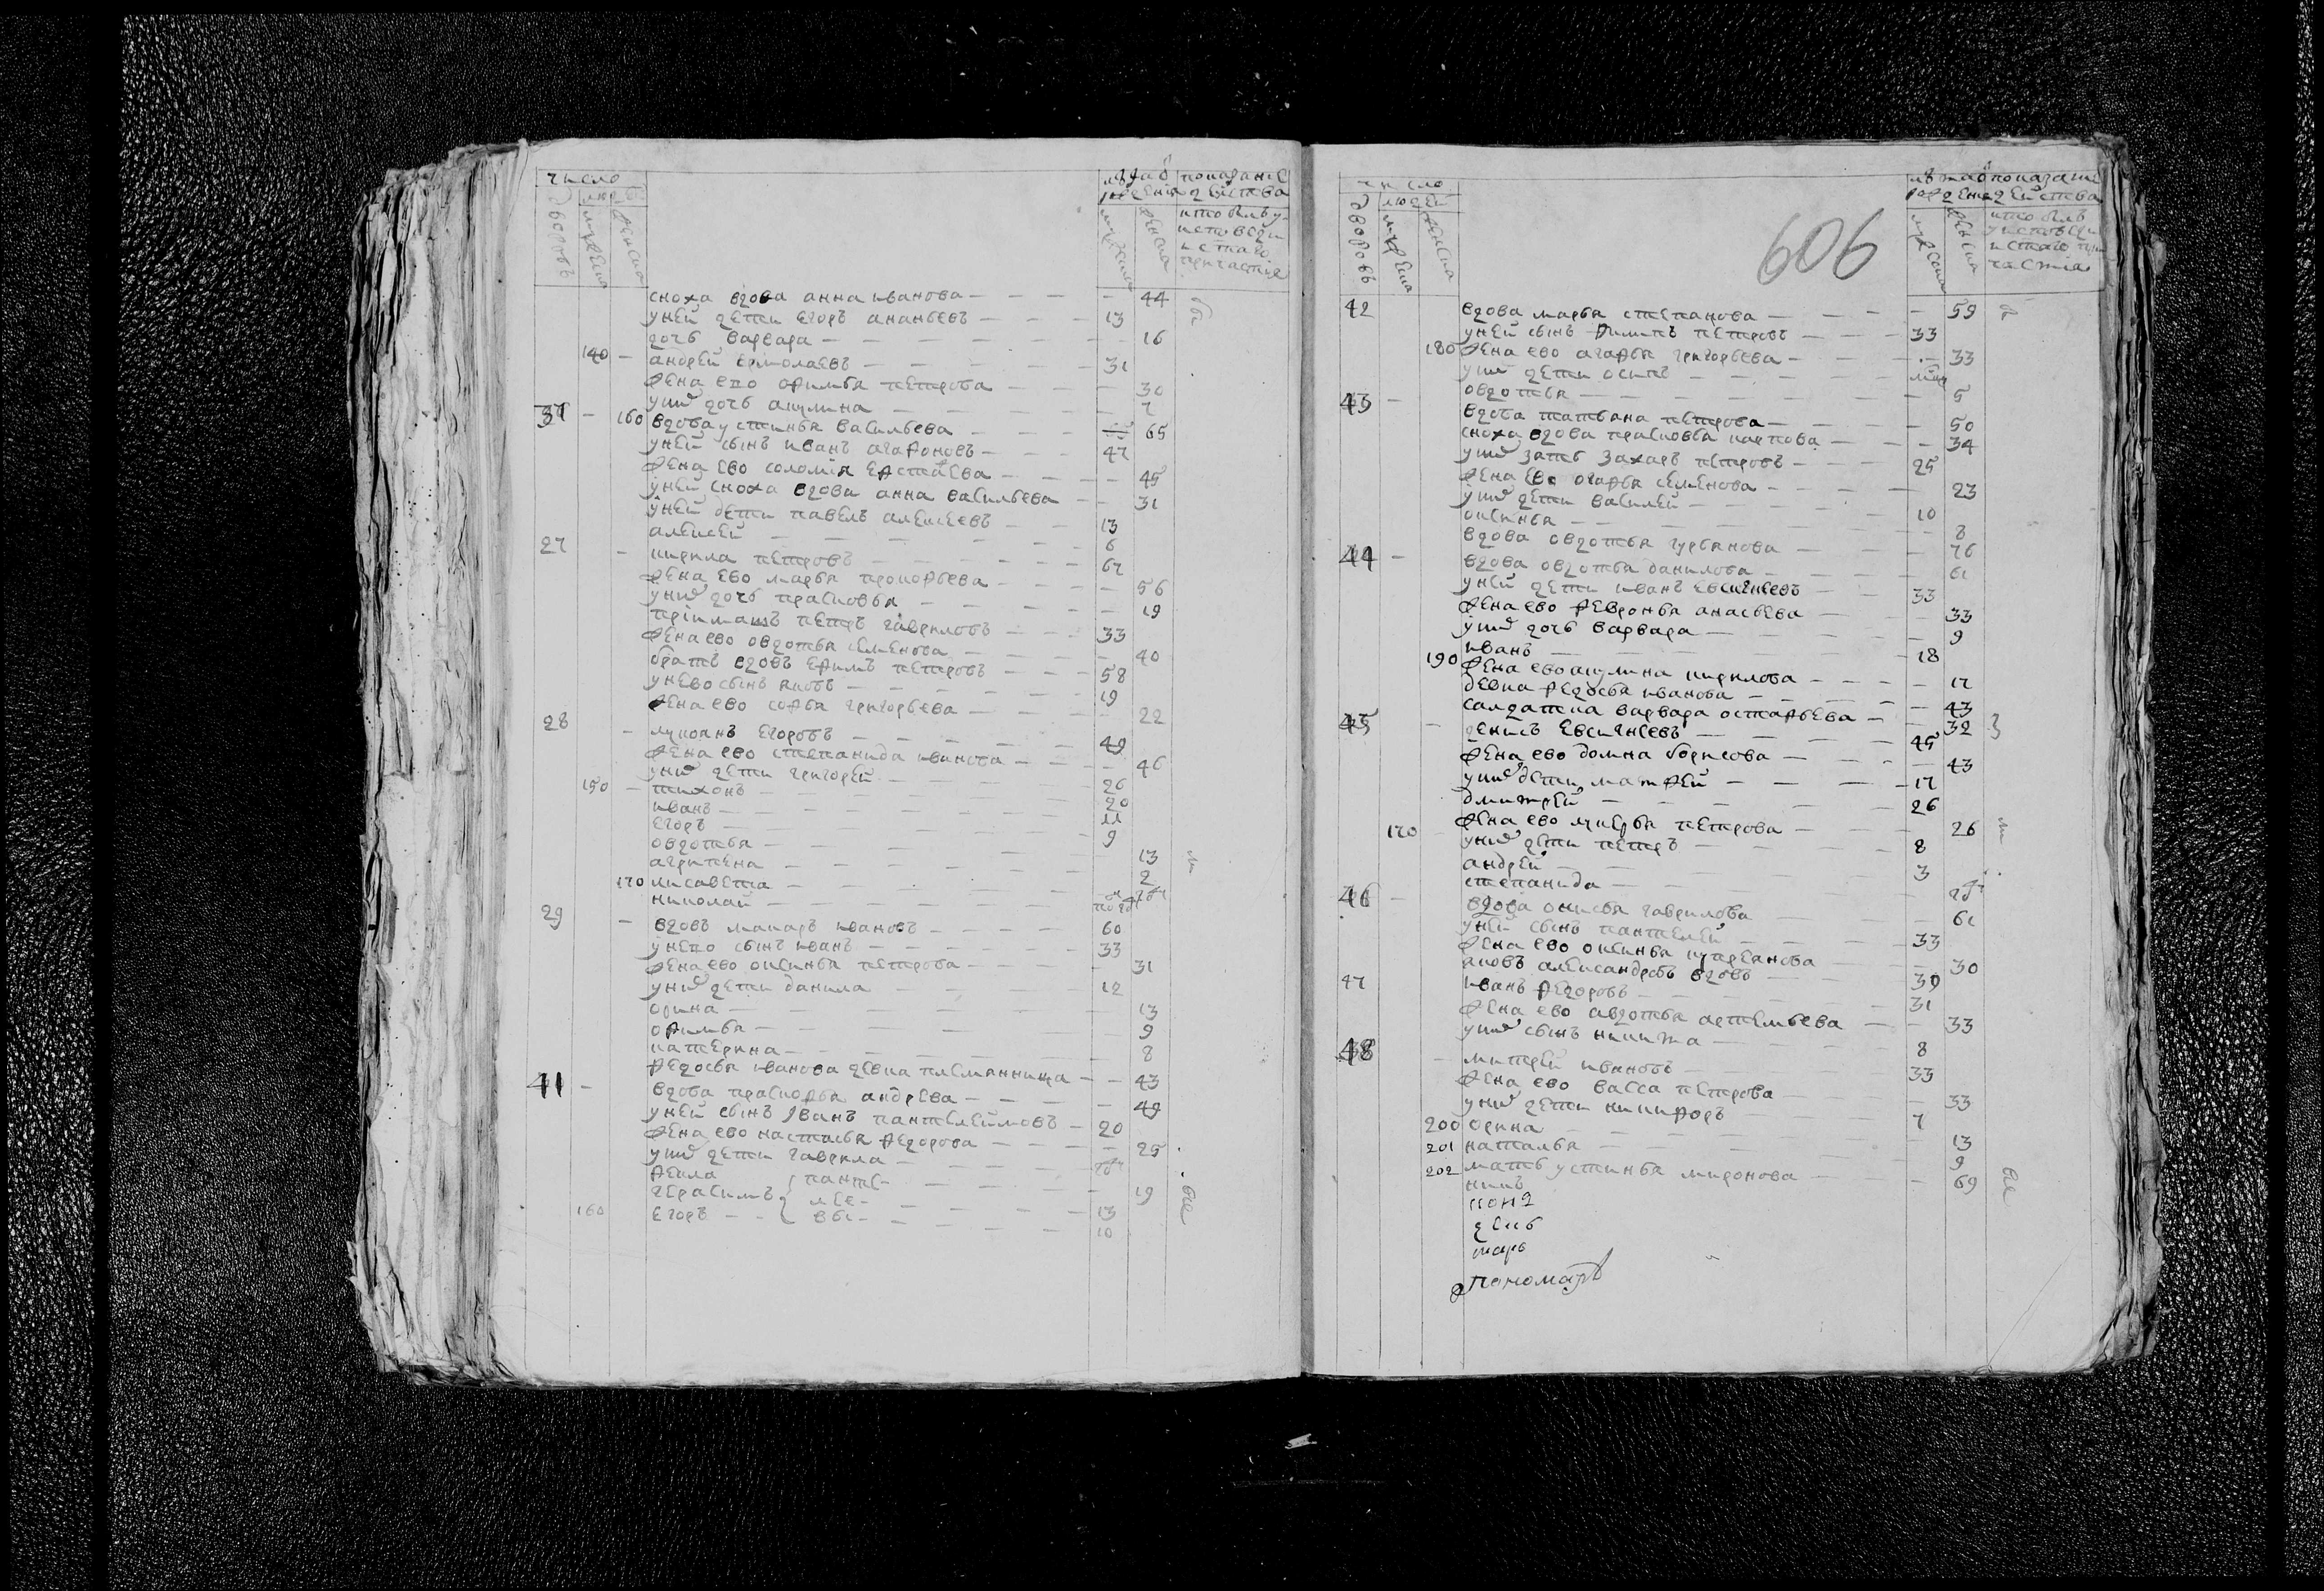 число
людей
дворовъ
мужеска
женска
лѣта о рожденія
показаніе действа
мужеска
женска
кто былъ у исповѣди и с͠таго причастія
сноха вдова анна иванова — 44
у ней дети егоръ ананьевъ — 13
дочь варвара — 16
140 — андрей ермолаевъ — 31
жена ево офимья петрова — 30
у них дочь акулина — 7
37 — 160 вдова устинья васильева — 65
у ней сынъ иванъ агафоновъ — 47
жена ево соломія
— 45
у ней сноха вдова анна васильева — 31
у ней дети павелъ алексеевъ — 13
алексей — 6
27 — кирила петровъ — 67
жена ево марья прокофьева — 56
у них дочь прасковья — 19
пріимашъ петръ гавриловъ — 33
жена ево овдотья семенова — 40
братъ вдовъ ефимъ петровъ — 58
у нево сынъ яковъ — 19
жена ево софья григорьева — 22
28 — лукоянъ егоровъ — 49
жена ево степанида иванова — 46
у них дети григорей — 26
150 — тихонъ — 20
иванъ — 11
егоръ — 9
овдотья — 13
агрипена — 2
170 лисавета —
николай —
29 — вдовъ макаръ ивановъ — 60
у нево сынъ иванъ — 33
жена ево оксинья петрова — 31
у них дети данила — 12
орина — 13
офимья — 9
катерина — 8
федосья иванова девка племянница — 43
41 — вдова прасковья андрева — 49
у ней сынъ иванъ пантелеймовъ — 20
жена ево настасья федорова — 25
у них дети гаврила —
фекла — 19
герасимъ — 13
160 егоръ — 10
пантелеевы
606
число
людей
дворовъ
мужеска
женска
лѣта о рожденія
показаніе действа
мужеска
женска
кто былъ у исповѣди и с͠таго причастія
42 вдова марья степанова — 59
у ней сынъ филипъ петровъ — 33
180 жена ево агафья григорьева — 33
у них дети осипъ —
овдотья — 5
43 — вдова татьяна петрова — 50
сноха вдова прасковья карпова — 34
у них зять захаръ петровъ — 25
жена ево огафья семенова — 23
у них дети василей — 10
оксинья — 8
вдова овдотья гурьянова — 76
44 — вдова овдотья данилова — 61
у ней дети иванъ евсигнеевъ — 33
жена ево февронья анасьева — 33
у них дочь варвара — 9
иванъ — 18
190 жена ево акулина кирилова — 17
девка федосья иванова — 43
салдатка варвара остафьева — 32
45 — денисъ евсигнеевъ — 45
жена ево домна борисова — 43
у них дети матфей — 17
дмитрей — 26
жена ево лукерья петрова — 26
170 у них дети петръ — 8
андрей — 3
степанида —
46 — вдова онисья гаврилова — 61
у ней сынъ пантелей — 33
жена ево оксинья
— 30
яковъ александровъ вдовъ — 39
47 иванъ федоровъ — 31
жена ево авдотья артемьева — 33
у них сынъ никита — 8
48 — митрей ивановъ — 33
жена ево васса петрова — 33
у них дети никифоръ — 7
200 орина — 13
201 наталья — 9
202 мать устинья миронова — 69
пономарь